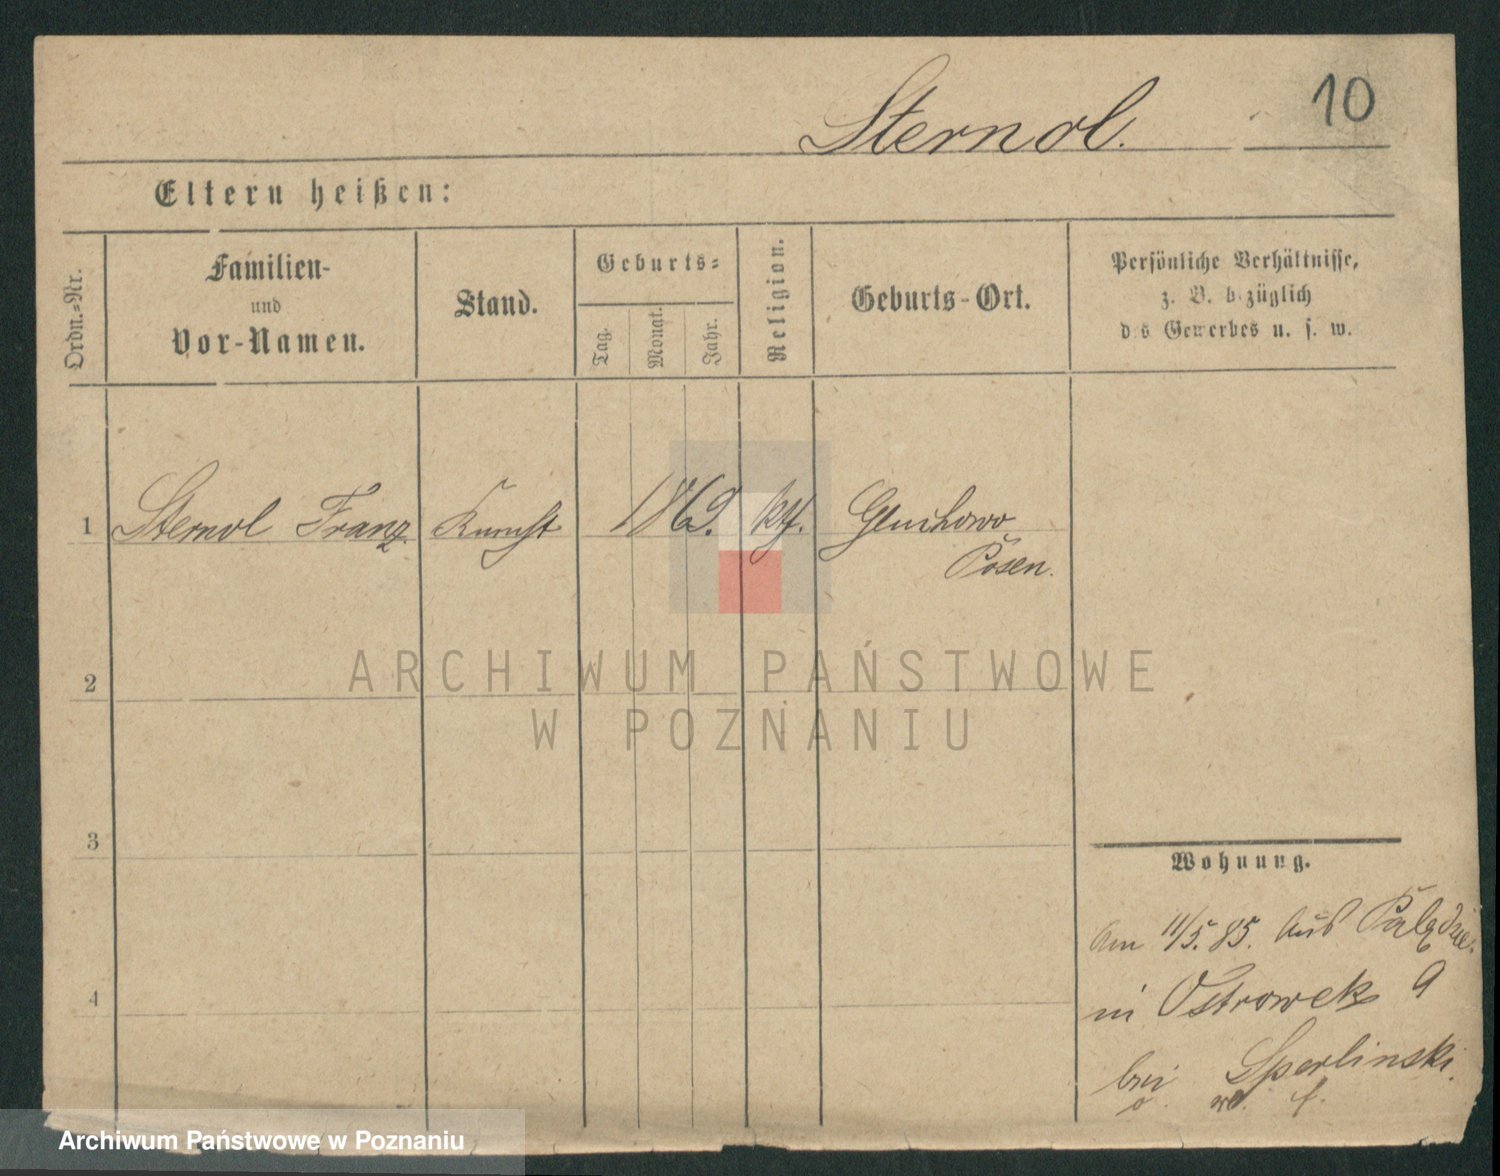 10
Sternol.
Eltern heißen:
Ordn.-Nr.
Familien-
und
Vor-Namen.
Stand.
Geburts-
Tag.
Monat.
Jahr.
Religion.
Geburts-Ort.
Persönliche Verhältnisse,
z. B. bezüglich
des Gewerbes u. s. w.
1 Sternol Franz 1869. kth. Gluchowo
Posen.
2
3
4
Wohnung.
Am 11/5. 85. Aus
in Ostrowek 9
bei Sperlinski.
ARCHIWUM PAŃSTWOWE
W POZNANIU
Archiwum Państwowe w Poznaniu